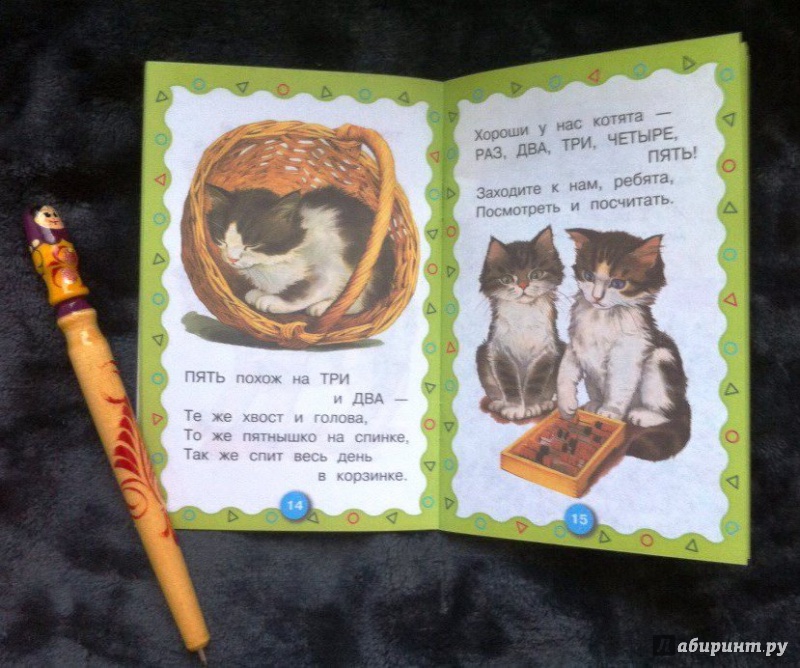 ПЯТЬ похож на ТРИ
и ДВА —
Те же хвост и голова,
То же пятнышко на спинке,
Так же спит весь день
в корзинке.
14
Хороши у нас котята —
РАЗ, ДВА, ТРИ, ЧЕТЫРЕ,
ПЯТЬ!
Заходите к нам, ребята,
Посмотреть и посчитать.
15
Лабиринт.ру